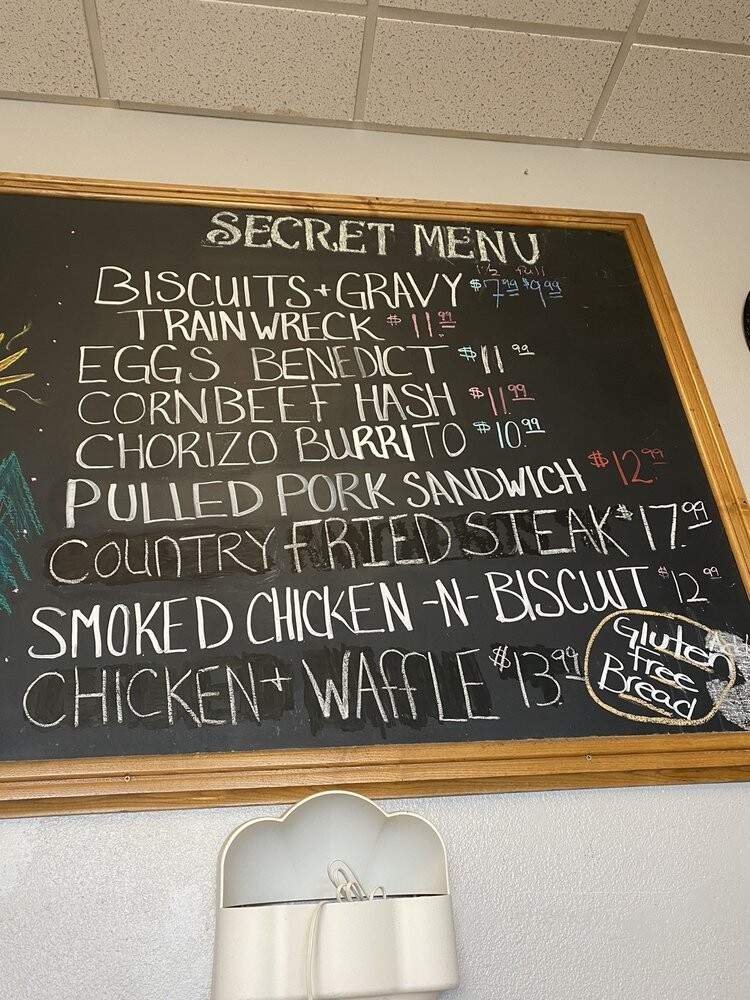 SECRET MENU
1/2 Full
BISCUITS + GRAVY $7.99 $9.99
TRAINWRECK $11.99
EGGS BENEDICT $11.99
CORNBEEF HASH $11.99
CHORIZO BURRITO $10.99
PULLED PORK SANDWICH $12.99
COUNTRY FRIED STEAK $17.99
SMOKED CHICKEN -N- BISCUIT $12.99
CHICKEN + WAffLE $13.99
Gluten
free
Bread